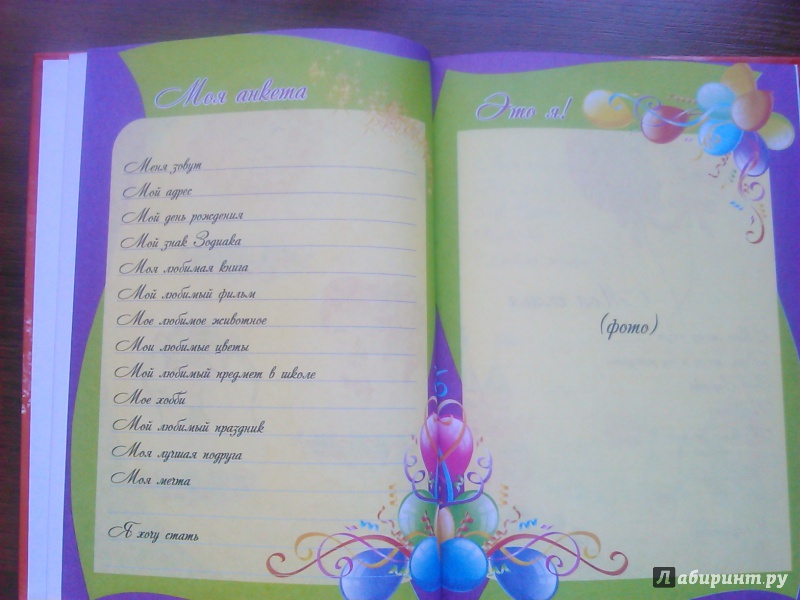 Моя анкета
Меня зовут
Мой адрес
Мой день рождения
Мой знак Зодиака
Моя любимая книга
Мой любимый фильм
Мое любимое животное
Мои любимые цветы
Мой любимый предмет в школе
Мое хобби
Мой любимый праздник
Моя лучшая подруга
Моя мечта
Я хочу стать
Это я!
(фото)
Лабиринт.ру